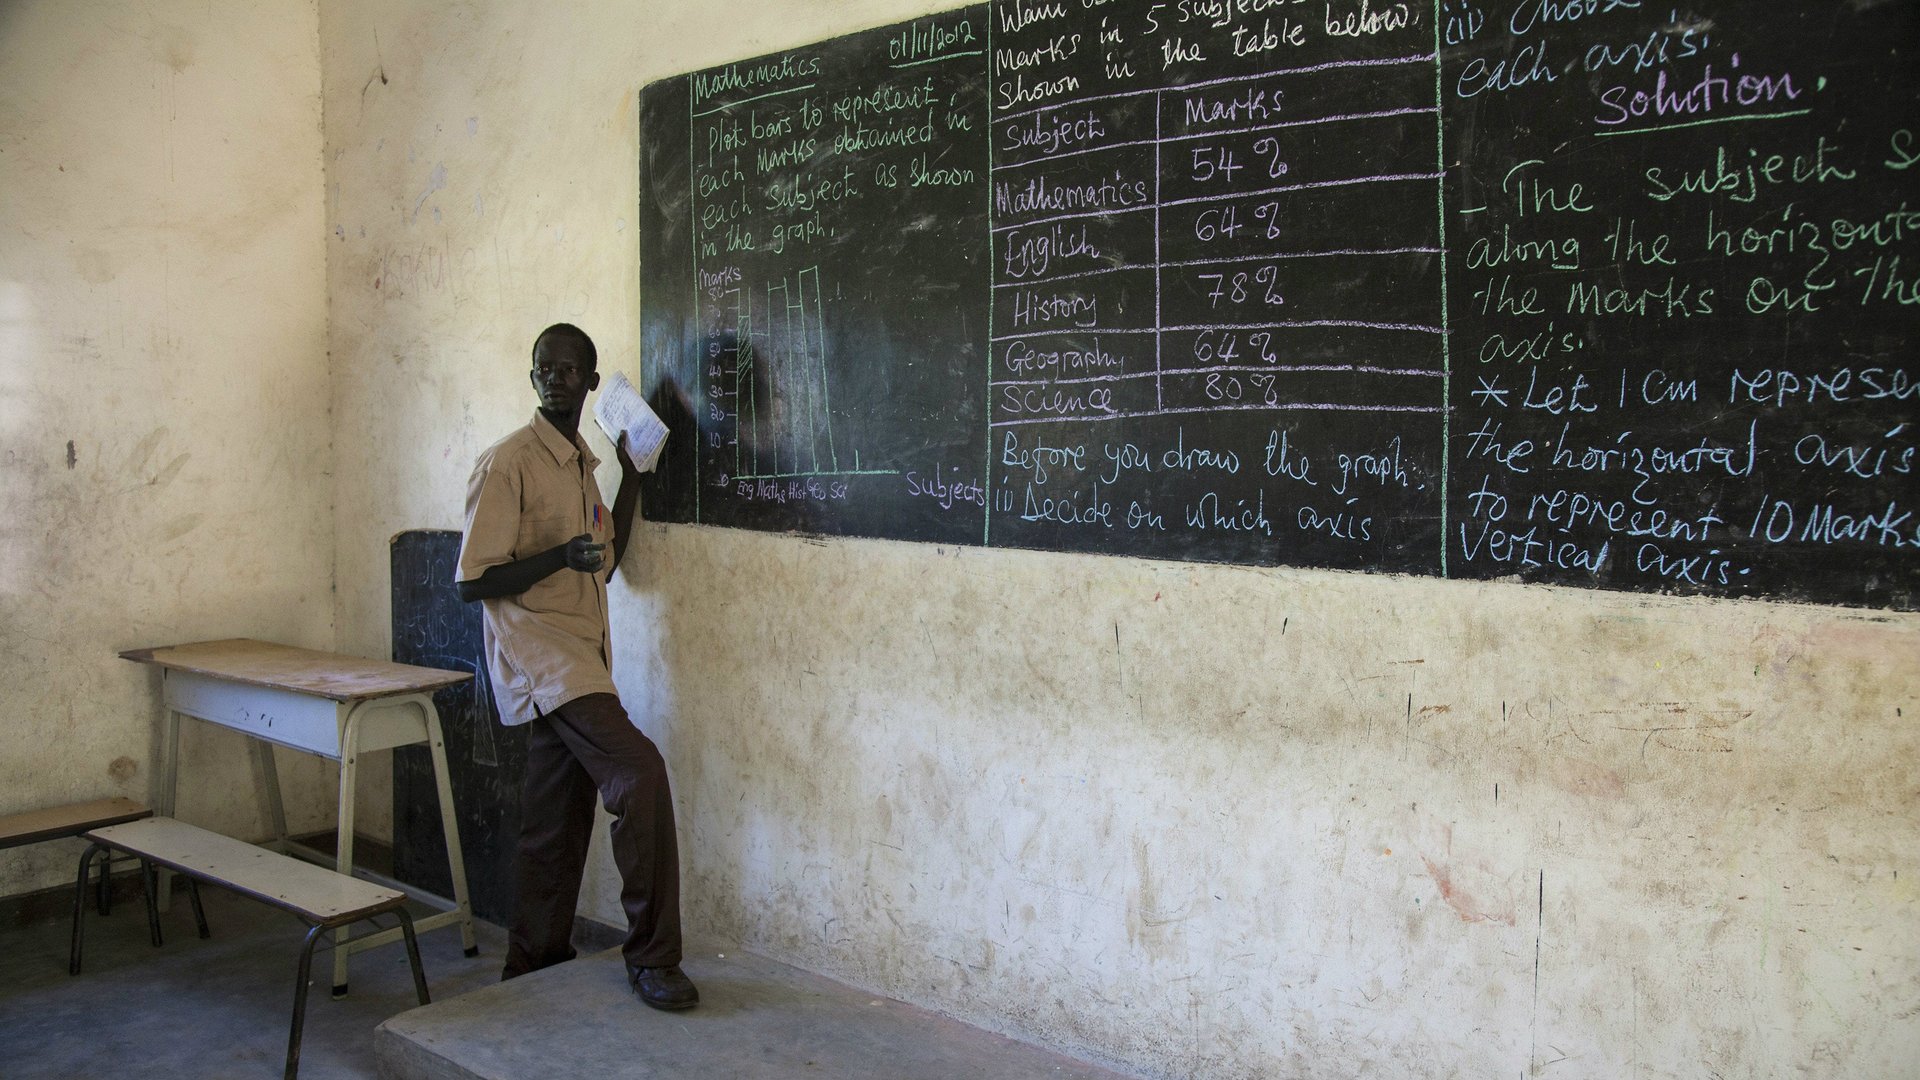 Mathematics
01/11/2012
- Plot bars to represent
each Marks obtained in
each Subject as Shown
in the graph.
Marks
80
50
40
30
20
10
0
Eng Maths Hist Geo Sci
Subjects
Marks in 5 Subject
Shown in the table below.
Subject Marks
Mathematics 54%
English 64%
History 78%
Geography 64%
Science 80%
Before you draw the graph:
i) Decide on which axis
ii) Choose
each axis.
Solution.
- The subject
along the
the Marks on the
axis.
* Let 1cm
the horizontal axis
to represent 10 Marks
Vertical axis.